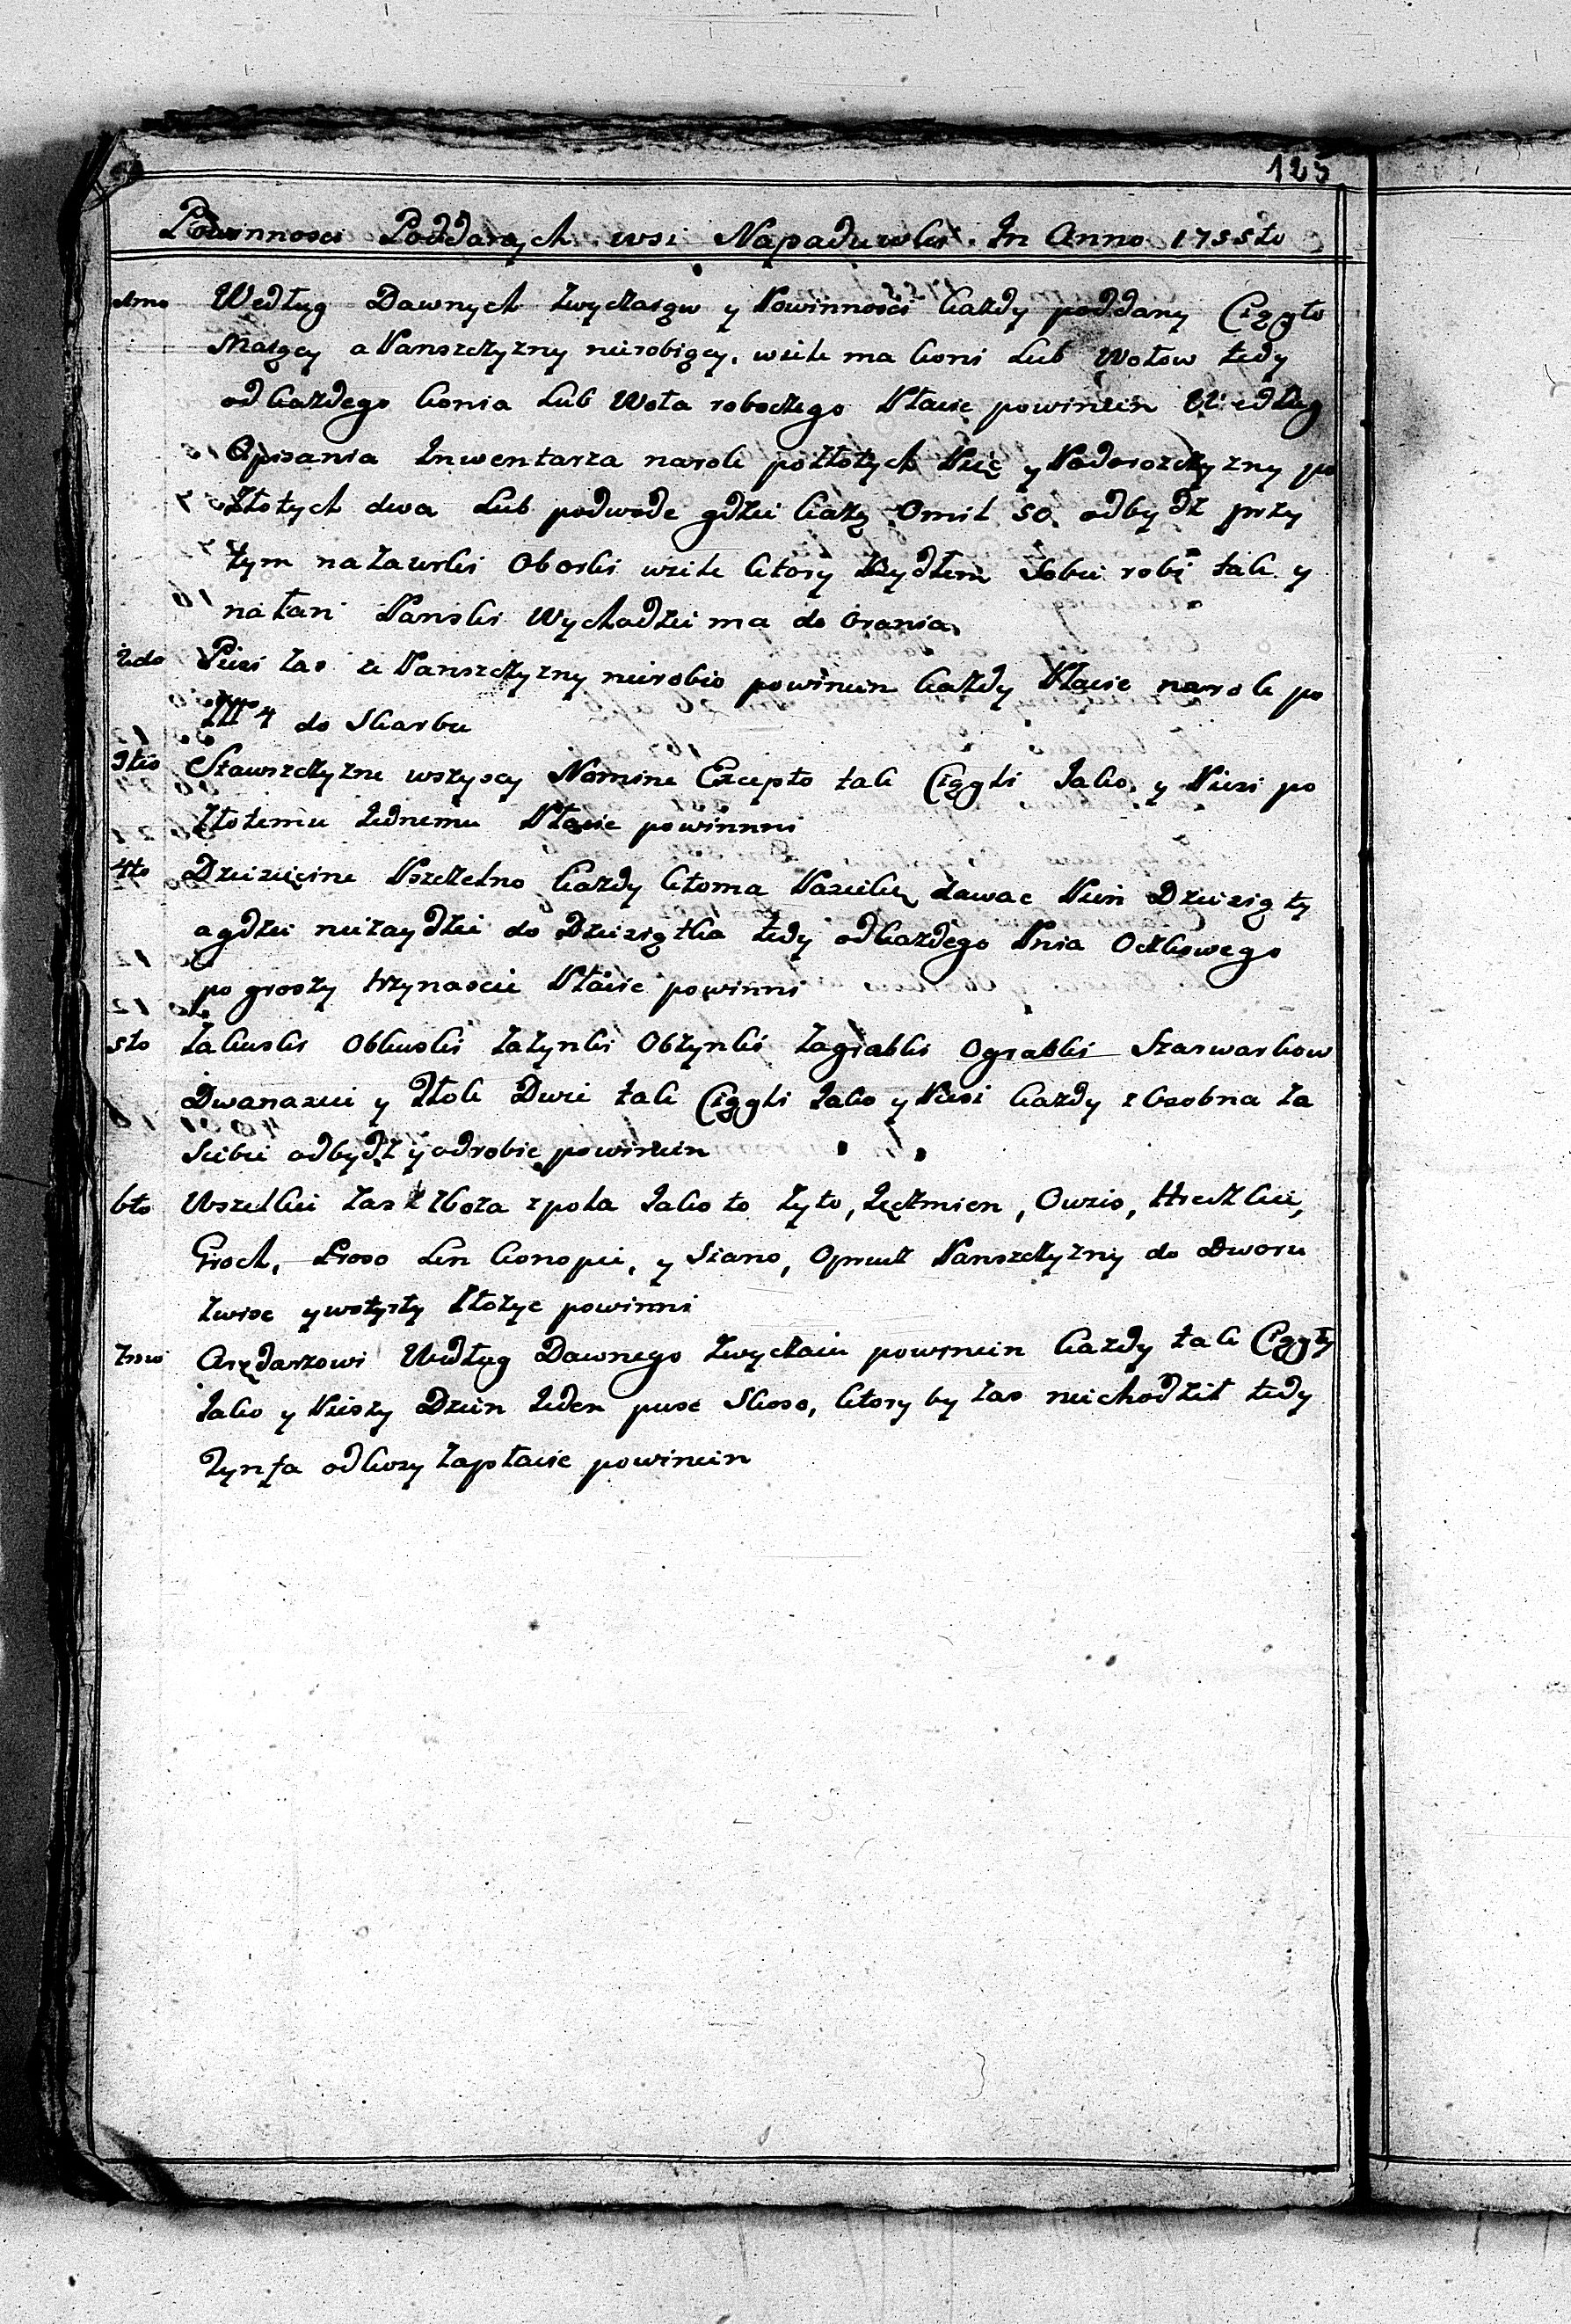 125
Powinnosci Poddanych wsi Napaduwki. In Anno 1755to
1mo Według Dawnych Zwyczaiow y Powinnosci każdy poddany Ciągło
Maiący a Panszczyzny nierobiący, wiele ma koni Lub Wołow tedy
od każdego konia Lub Woła roboczego Płacic powinien Według
Opisania Inwentarza narok po złotych Pięć y Podorozczyzny po
złotych dwa Lub podwode gdzie każą Omil 50 odbydz przy
tym nazawrki Oborki wiele ktory Bydłem Sobie robi tak y
na łan Panski Wychodzic ma do Orania
2do Piesi zas ze Panszczyzny nierobio powinien każdy Płacic narok po
4 do Skarbu
3tio Stawszczyzne wszyscy Nomine Excepto tak Ciągli Jako y Piesi po
złotemu Jednemu Płacic powinnni
4to Dziesięcine Pszczelno każdy ktoma Pasieke dawac Pień Dziesiąty
a gdzie niezaydzie do Dziesiątka tedy od każdego Pnia Oczkowego
po groszy trzynascie Płacic powinni
5to Zakuski Obkuski Zazynki Obzynki Zagrabki Ograbki Szarwarkow
Dwanascie y Tłok Dwie tak Ciągli Jako y Piesi każdy z Osobna za
Siebie odbydz y odrobic powinien
6to Wszelkie zas Zboza z pola Jako to Zyto, Jęczmien, Owies, Hreczkie,
Groch, Proso Len konopie, y Siano, Oprucz Panszczyzny do Dworu
zwiesc y wstyrty Złozyc powinni
7mo Arędarzowi Według Dawnego Zwyczaiu powinien kazdy tak Ciągły
Jako y Pieszy Dzien Jeden pusc Skoso, ktory by zas niechodził tedy
Tynfa od kosy zapłacic powinien